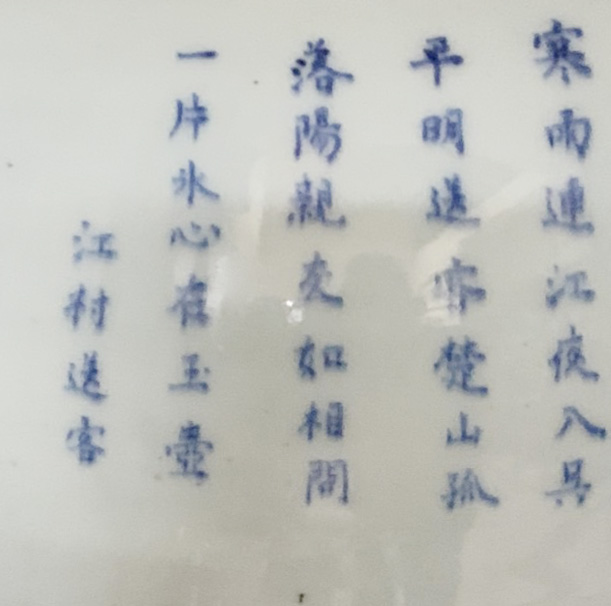 寒雨連江夜入吳
平明送亦楚山孤
落陽親友如相問
一片氷心在玉壺
江村送客